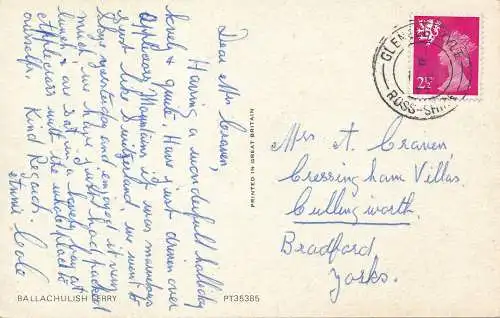 Dear Mrs Craven,
Having a wonderfull holliday
here & quite. Have just driven over
Applecross Mountains it was marvelous
just like Switzerland, we went to
Skye yesterday and enjoyed it very
much. we have just had packed
lunch & are sat in a lovely bay at
Applecross with the whole place to
ourselfs. Kind Regards.
Cole
BALLACHULISH FERRY
PT35385
PRINTED IN GREAT BRITAIN
ROSS-SHIRE
2½
Mrs A. Craven
Cressingham Villas.
Cullingworth.
Bradford
Yorks.